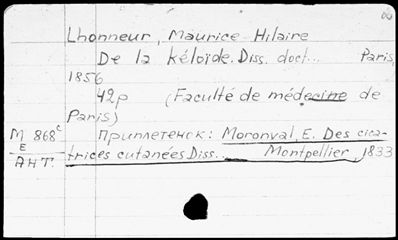 Lhonneur, Maurice Hilaire
De la kéloïde. Diss. doct... Paris,
1856
42p (Faculté de médecine de
Paris)
M 868c Приплетенок: Moronval, E. Des cica-
E trices cutanées Diss.... Montpellier, 1833
АНТ